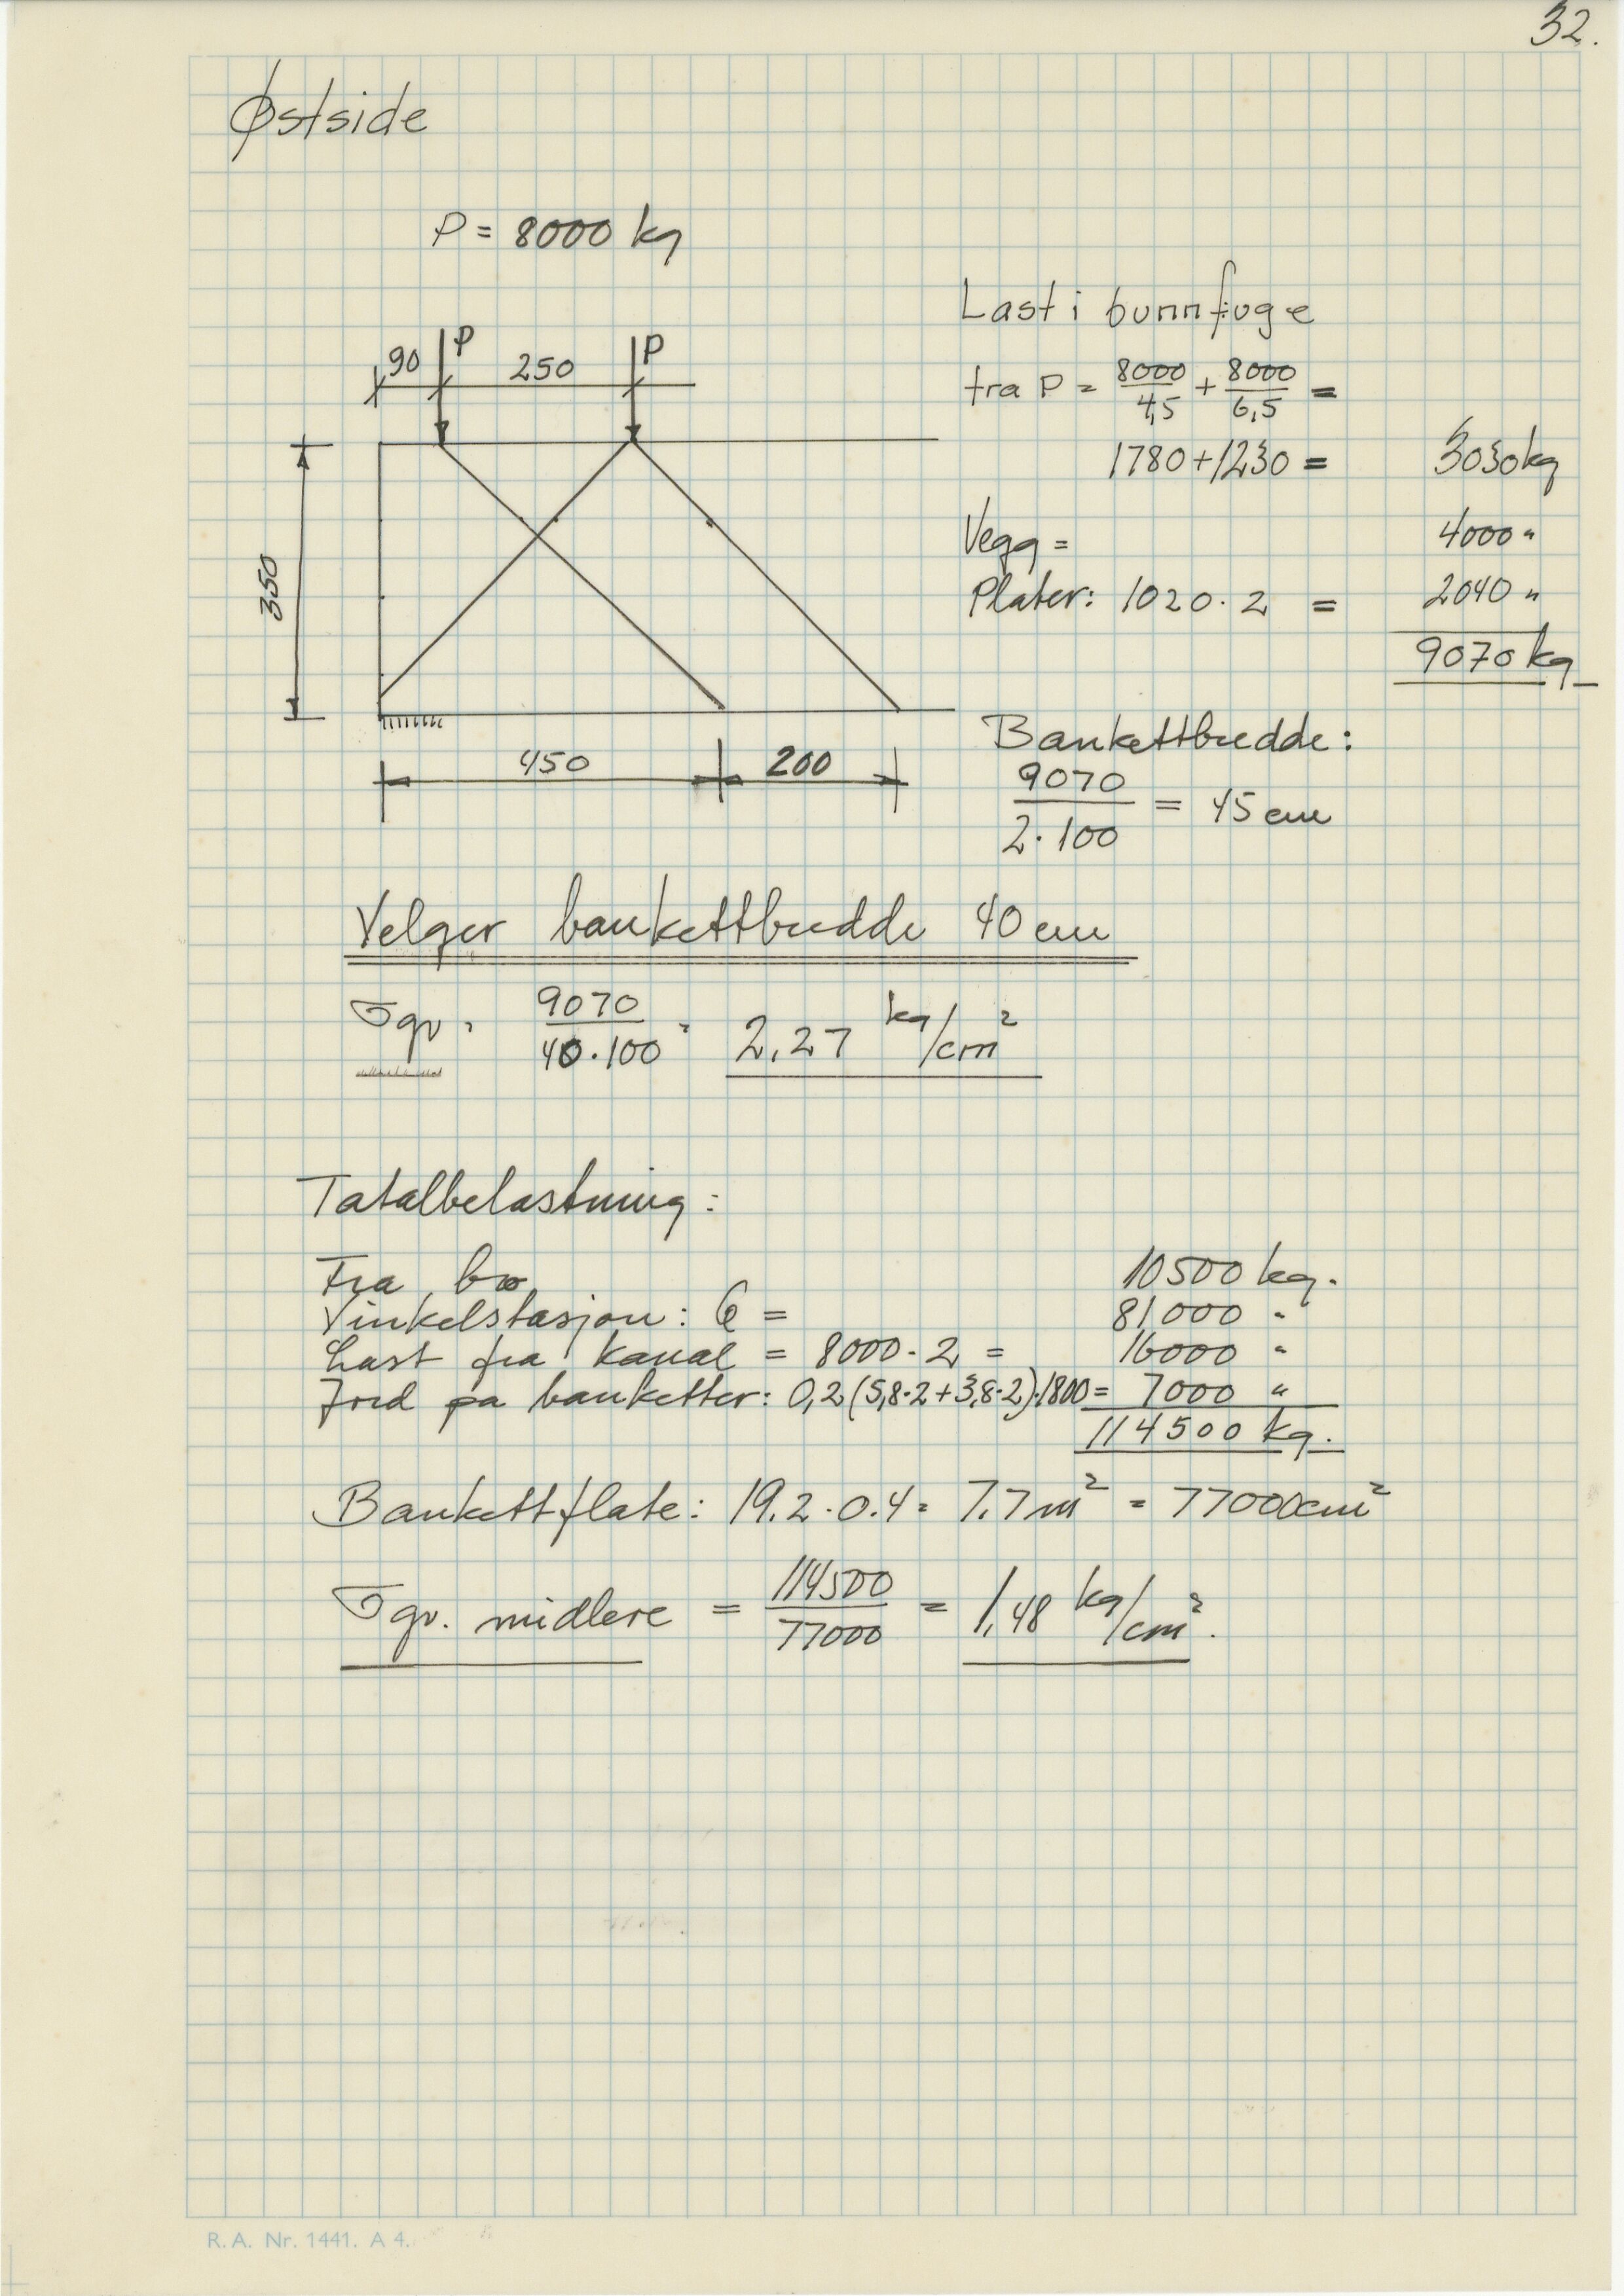 32.
Østside
P = 8000 kg
90 P 250 P
350
450 200
Last i bunnfuge
fra P = 8000/4,5 + 8000/6,5 =
1780+1230 = 3030kg
Vegg = 4000 "
Plater: 1020·2 = 2040 "
9070 kg
Bankettbredde:
9070/2·100 = 45 cm
Velger bankettbredde 40 cm
σgr. = 9070/40·100 = 2,27 kg/cm²
Totalbelastning:
Fra bro 10500 kg.
Vinkelstasjon: G = 81000 "
Last fra kanal = 8000·2 = 16000 "
Jord på banketter: 0,2(5,8·2+3,8·2)·1800 = 7000 "
114500 kg.
Bankettflate: 19.2·0.4 = 7.7 m² = 77000cm²
σgr. midlere = 114500/77000 = 1,48 kg/cm².
R.A. Nr. 1441. A 4.